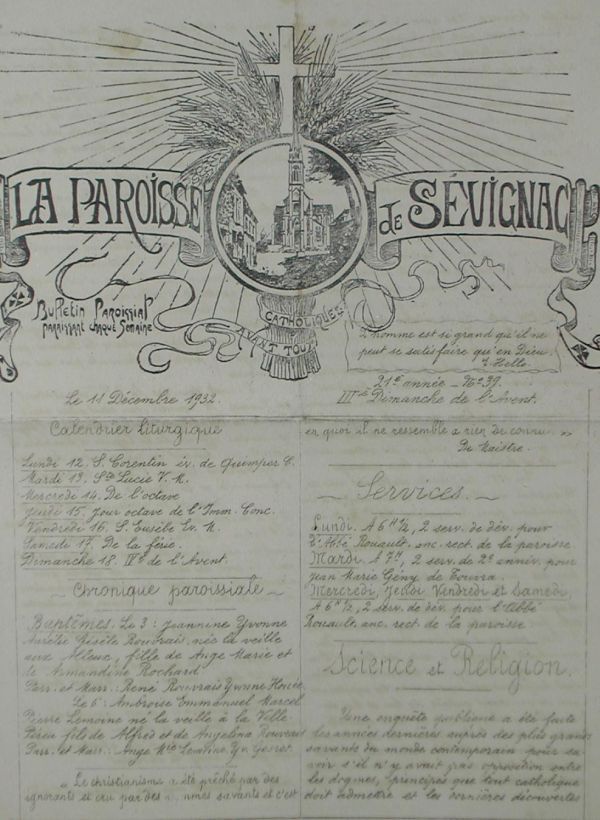 LA PAROISSE
de SÉVIGNAC
Bulletin Paroissial
paraissant chaque Semaine
CATHOLIQUES
AVANT TOUT
L'homme est si grand qu'il ne
peut se satisfaire qu'en Dieu.
E. Hello.
Le 11 Décembre 1932.
21e année – No 39.
IIIe Dimanche de l'Avent.
Calendrier liturgique
Lundi 12. S. Corentin év. de Quimper C.
Mardi 13. Ste Lucie V. M.
Mercredi 14. De l'octave
Jeudi 15. Jour octave de l'Imm. Conc.
Vendredi 16. S. Eusèbe Ev. M.
Samedi 17. De la férie.
Dimanche 18. IVe de l'Avent.
~ Chronique paroissiale ~
Baptêmes. Le 3 : Jeannine Yvonne
Aurélie Gisèle Rouvrais, née la veille
aux Alleux, fille de Ange Marie et
de Armandine Rochard
Parr. et Marr. : René Rouvrais Yvonne
Le 6 : Ambroise Emmanuel Marcel
Pierre Lemoine né la veille à la Ville
fils de Alfred et de Angelina Rouvrais
Parr. et Marr. : Ange Mie Lemoine Yv.
" Le christianisme a été prêché par des
ignorants et cru par des savants et c'est
en quoi il ne ressemble à rien de connu. »
De Maistre.
~ Services. ~
Lundi. A 6 H ½, 2 serv. de dév. pour
l'Abbé Rouault, anc. rect. de la paroisse
Mardi. A 7 H, 2 serv. de 2e anniv. pour
Jean Marie Gény de
Mercredi, Jeudi, Vendredi et Samedi,
A 6 H ½, 2 serv. de dév. pour l'Abbé
Rouault, anc. rect. de la paroisse
Science et Religion.
Une enquête publique a été faite
les années dernières auprès des plus grands
savants du monde contemporain pour sa-
voir s'il n'y avait pas opposition entre
les dogmes, principes que tout catholique
doit admettre et les dernières découvertes